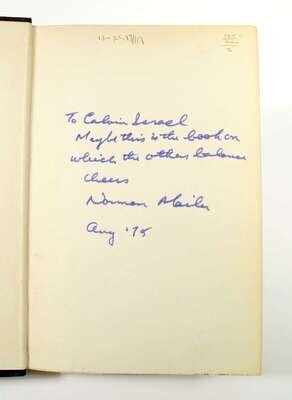 To Calvin Israel
Maybe this is the book on
which the others balance
Cheers
Norman Mailer
Aug '75